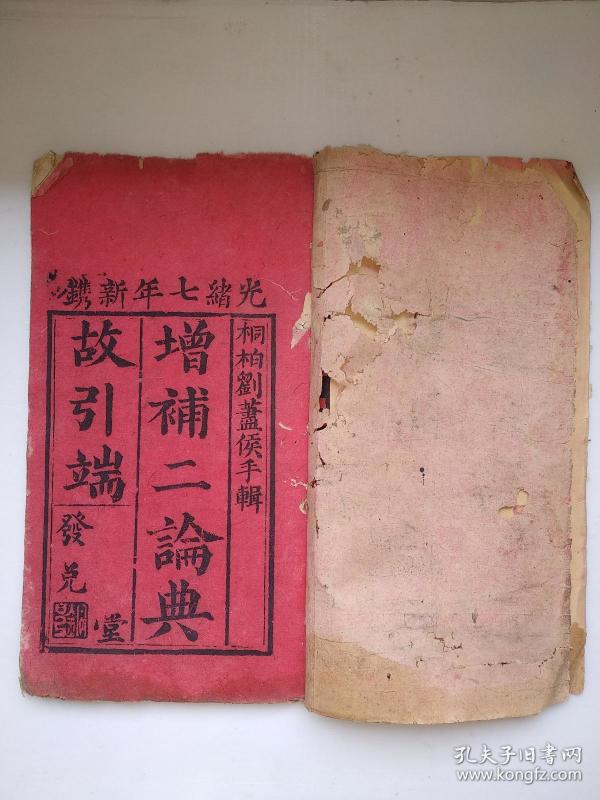 光緒七年新鐫
桐柏劉蓋侯手輯
增補二論典
故引端
發兌
堂
孔夫子旧书网
www.kongfz.com